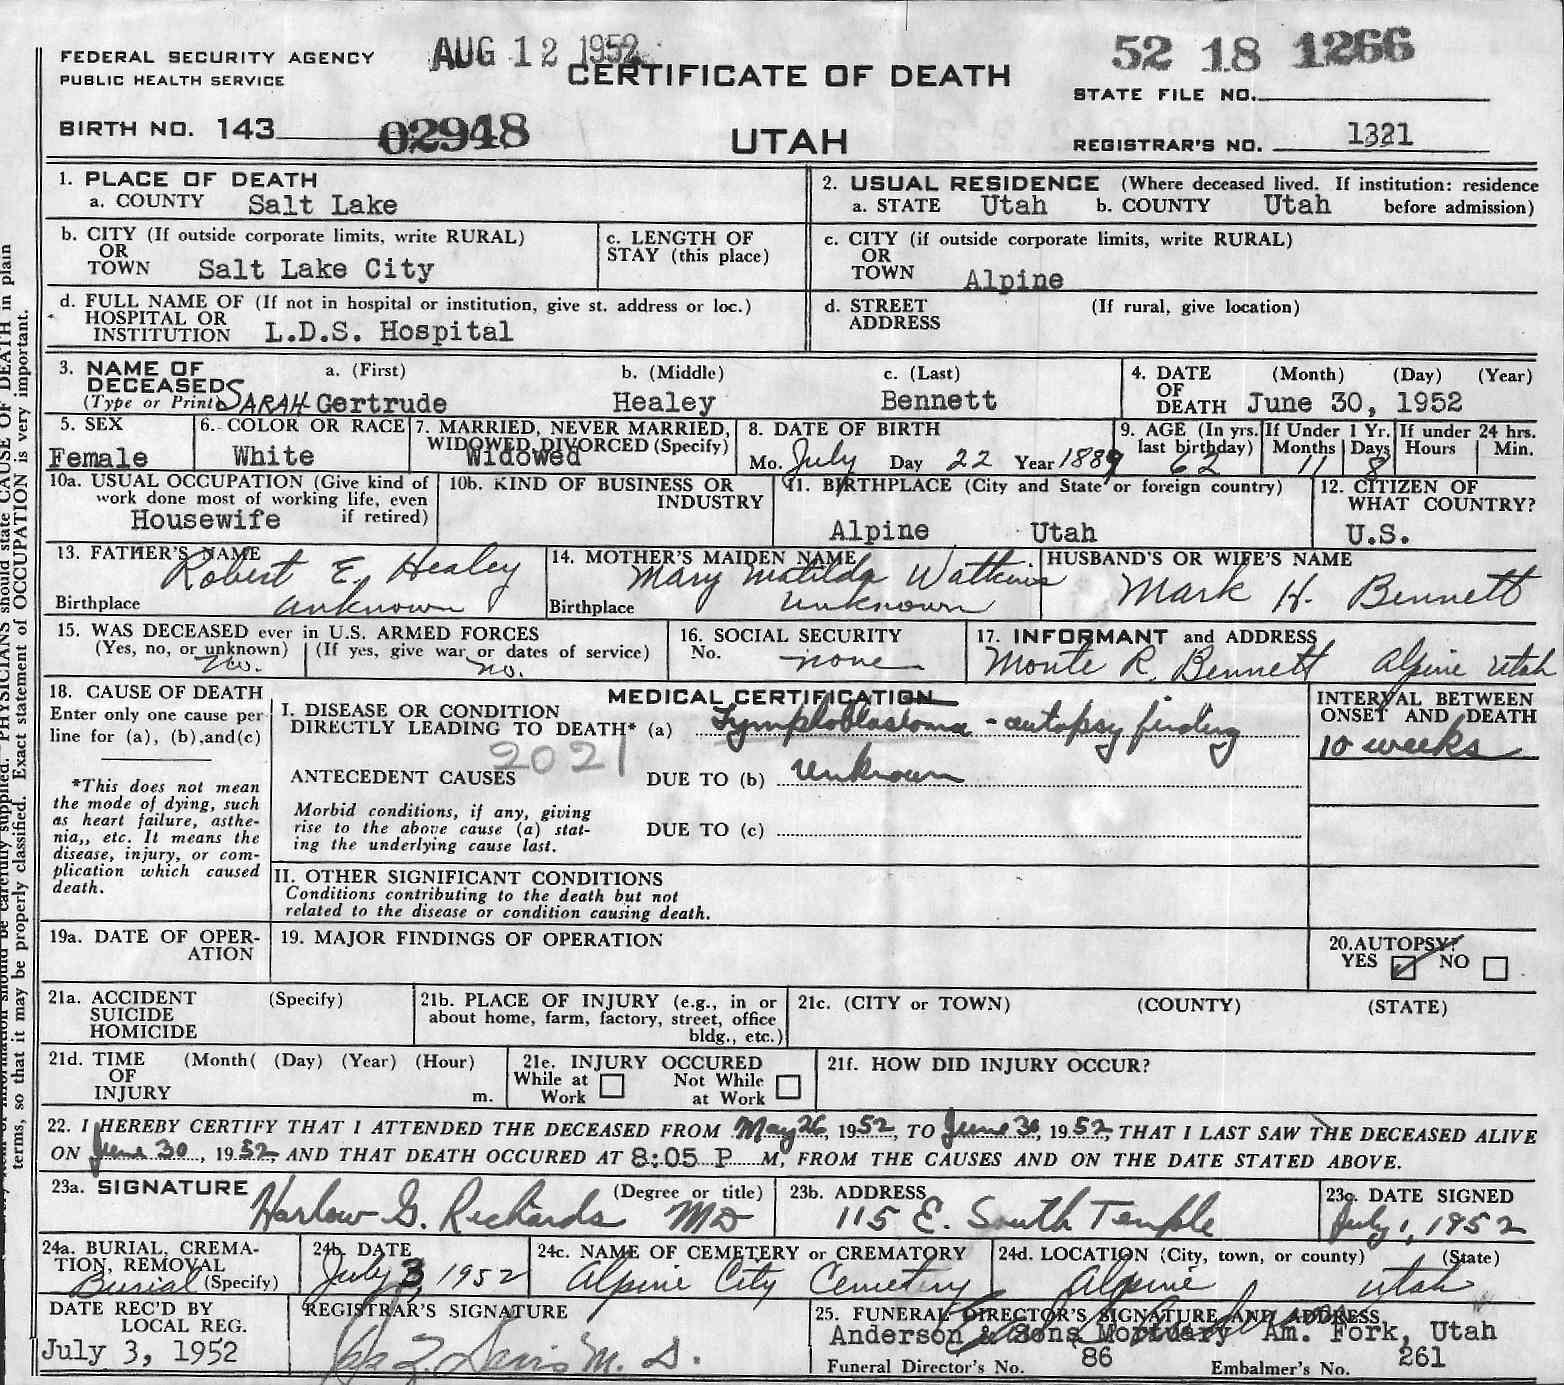 AUG 12 1952
52 18 1266
FEDERAL SECURITY AGENCY
PUBLIC HEALTH SERVICE
CERTIFICATE OF DEATH
STATE FILE NO.
BIRTH NO. 143 02948
UTAH
REGISTRAR'S NO. 1321
1. PLACE OF DEATH
a. COUNTY Salt Lake
2. USUAL RESIDENCE (Where deceased lived. If institution: residence
a. STATE Utah b. COUNTY Utah before admission)
b. CITY (If outside corporate limits, write RURAL)
OR
TOWN Salt Lake City
c. LENGTH OF
STAY (this place)
c. CITY (if outside corporate limits, write RURAL)
OR
TOWN Alpine
d. FULL NAME OF (If not in hospital or institution, give st. address or loc.)
HOSPITAL OR
INSTITUTION L.D.S. Hospital
d. STREET (If rural, give location)
ADDRESS
3. NAME OF a. (First) b. (Middle) c. (Last)
DECEASED
(Type or Print) SARAH Gertrude Healey Bennett
4. DATE (Month) (Day) (Year)
OF
DEATH June 30, 1952
5. SEX
Female
6. COLOR OR RACE
White
7. MARRIED, NEVER MARRIED,
WIDOWED DIVORCED (Specify)
Widowed
8. DATE OF BIRTH
Mo. July Day 22 Year 1889
9. AGE (In yrs. last birthday) 62
If Under 1 Yr. Months 11 Days 8
If under 24 hrs. Hours Min.
10a. USUAL OCCUPATION (Give kind of
work done most of working life, even
Housewife if retired)
10b. KIND OF BUSINESS OR
INDUSTRY
11. BIRTHPLACE (City and State or foreign country)
Alpine Utah
12. CITIZEN OF
WHAT COUNTRY?
U.S.
13. FATHER'S NAME
Robert E. Healey
Birthplace unknown
14. MOTHER'S MAIDEN NAME
Mary Matilda Watkins
Birthplace unknown
HUSBAND'S OR WIFE'S NAME
Mark H. Bennett
15. WAS DECEASED ever in U.S. ARMED FORCES
(Yes, no, or unknown) (If yes, give war or dates of service)
No. no.
16. SOCIAL SECURITY
No. none
17. INFORMANT and ADDRESS
Monte R. Bennett Alpine Utah
18. CAUSE OF DEATH
Enter only one cause per
line for (a), (b),and(c)
*This does not mean
the mode of dying, such
as heart failure, asthe-
nia,, etc. It means the
disease, injury, or com-
plication which caused
death.
MEDICAL CERTIFICATION
I. DISEASE OR CONDITION
DIRECTLY LEADING TO DEATH* (a) Lymphoblastoma - autopsy finding
2021
ANTECEDENT CAUSES DUE TO (b) unknown
Morbid conditions, if any, giving
rise to the above cause (a) stat-
ing the underlying cause last.
DUE TO (c)
INTERVAL BETWEEN
ONSET AND DEATH
10 weeks
II. OTHER SIGNIFICANT CONDITIONS
Conditions contributing to the death but not
related to the disease or condition causing death.
19a. DATE OF OPER-
ATION
19. MAJOR FINDINGS OF OPERATION
20. AUTOPSY?
YES NO
21a. ACCIDENT (Specify)
SUICIDE
HOMICIDE
21b. PLACE OF INJURY (e.g., in or
about home, farm, factory, street, office
bldg., etc.)
21c. (CITY or TOWN) (COUNTY) (STATE)
21d. TIME (Month( (Day) (Year) (Hour)
OF
INJURY m.
21e. INJURY OCCURED
While at Work Not While at Work
21f. HOW DID INJURY OCCUR?
22. I HEREBY CERTIFY THAT I ATTENDED THE DECEASED FROM May 26, 1952, TO June 30, 1952, THAT I LAST SAW THE DECEASED ALIVE
ON June 30, 1952, AND THAT DEATH OCCURED AT 8:05 P M, FROM THE CAUSES AND ON THE DATE STATED ABOVE.
23a. SIGNATURE (Degree or title)
Harlow G. Richards MD
23b. ADDRESS
115 E. South Temple
23c. DATE SIGNED
July 1, 1952
24a. BURIAL, CREMA-
TION, REMOVAL
Burial (Specify)
24b. DATE
July 3, 1952
24c. NAME OF CEMETERY or CREMATORY
Alpine City Cemetery
24d. LOCATION (City, town, or county) (State)
Alpine Utah
DATE REC'D BY
LOCAL REG.
July 3, 1952
REGISTRAR'S SIGNATURE
Davis M. D.
25. FUNERAL DIRECTOR'S SIGNATURE AND ADDRESS
Anderson & Sons Mortuary Am. Fork, Utah
Funeral Director's No. 86 Embalmer's No. 261
PHYSICIANS should state CAUSE OF DEATH in plain
terms, so that it may be properly classified. Exact statement of OCCUPATION is very important.